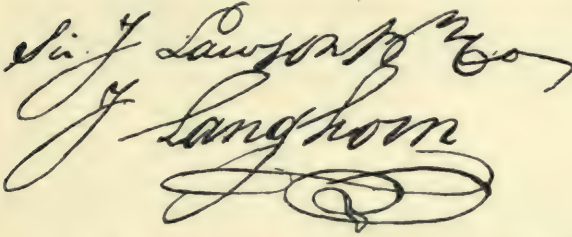 Sir J Lawson Bt & Co
J Langhorn